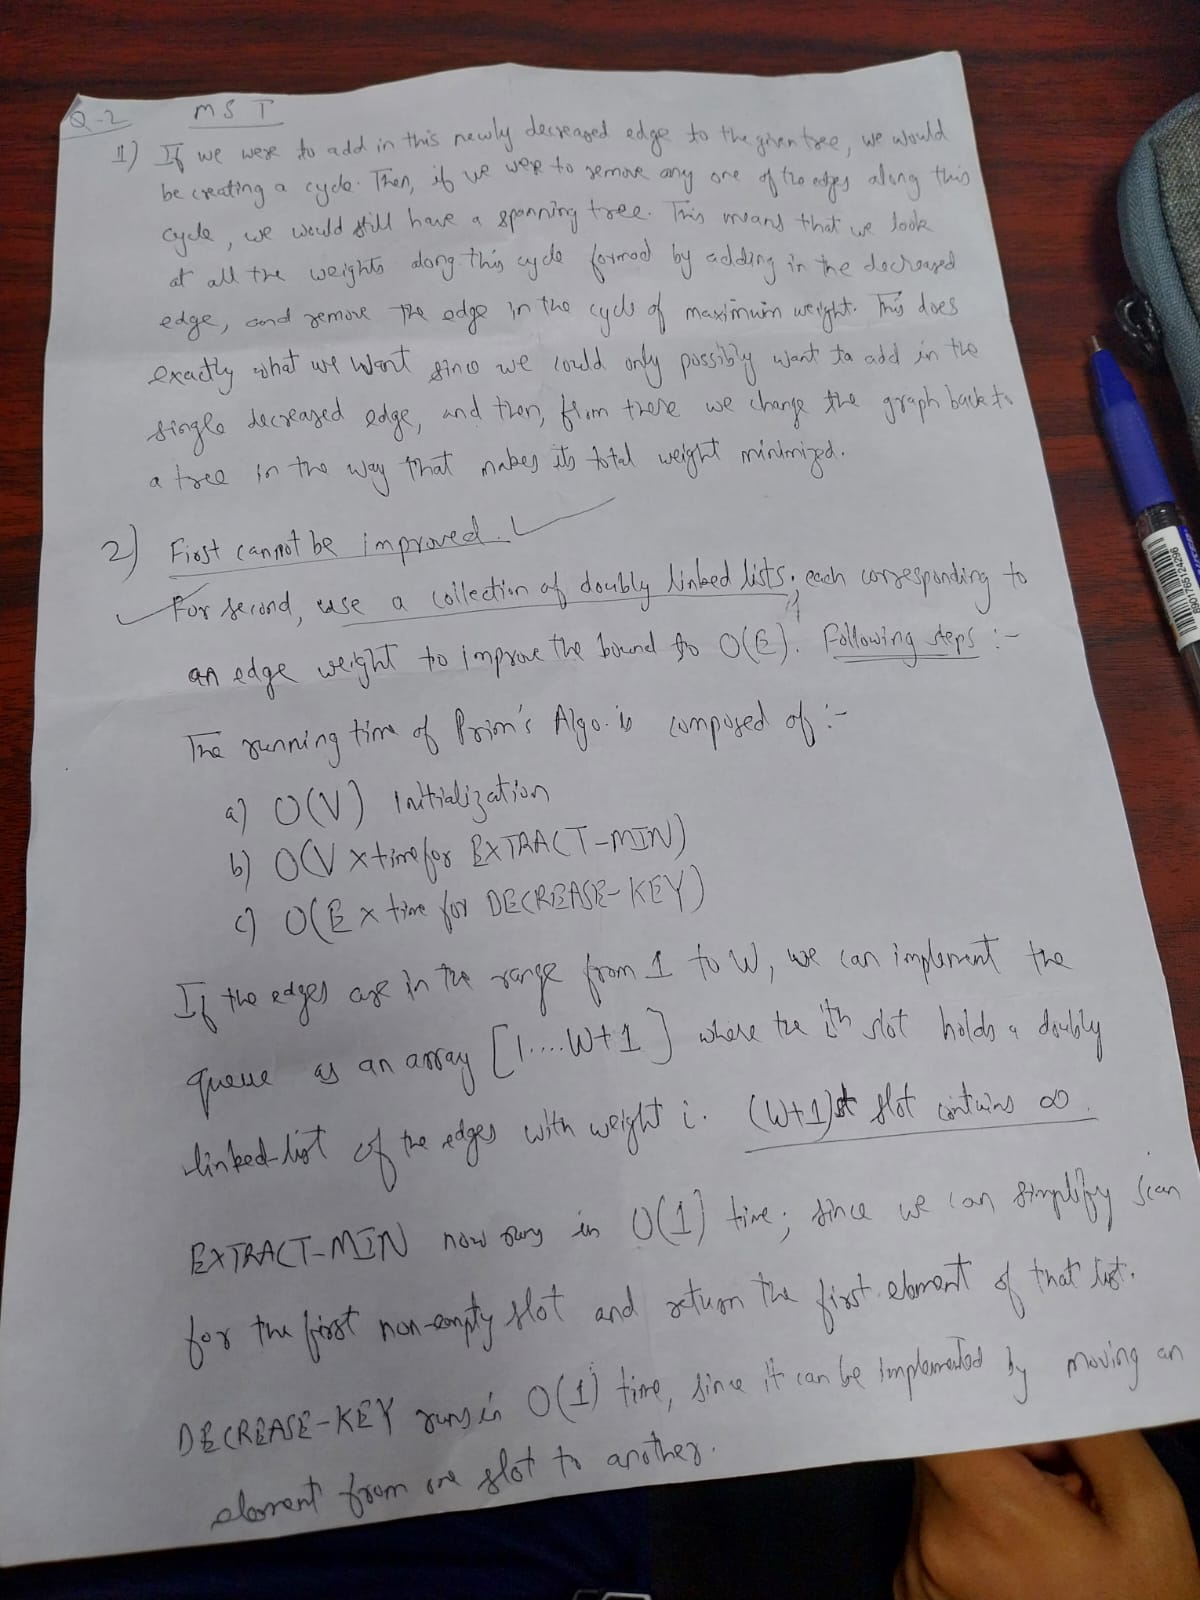 Q-2 MST
1) If we were to add in this newly decreased edge to the given tree, we would
be creating a cycle. Then, if we were to remove any one of the edges along this
cycle, we would still have a spanning tree. This means that we look
at all the weights along this cycle formed by adding in the decreased
edge, and remove the edge in the cycle of maximum weight. This does
exactly what we want since we could only possibly want to add in the
single decreased edge, and then, from there we change the graph back to
a tree in the way that makes its total weight minimized.
2) First cannot be improved.
For second, use a collection of doubly linked lists, each corresponding to
an edge weight to improve the bound to O(E). Following steps :-
The running time of Prim's Algo. is composed of :-
a) O(V) Initialization
b) O(V x time for EXTRACT-MIN)
c) O(E x time for DECREASE-KEY)
If the edges are in the range from 1 to W, we can implement the
queue as an array [1....W+1] where the ith slot holds a doubly
linked-list of the edges with weight i. (W+1)st slot contains ∞.
EXTRACT-MIN now runs in O(1) time; since we can simplify scan
for the first non-empty slot and return the first element of that list.
DECREASE-KEY runs in O(1) time, since it can be implemented by moving an
element from one slot to another.